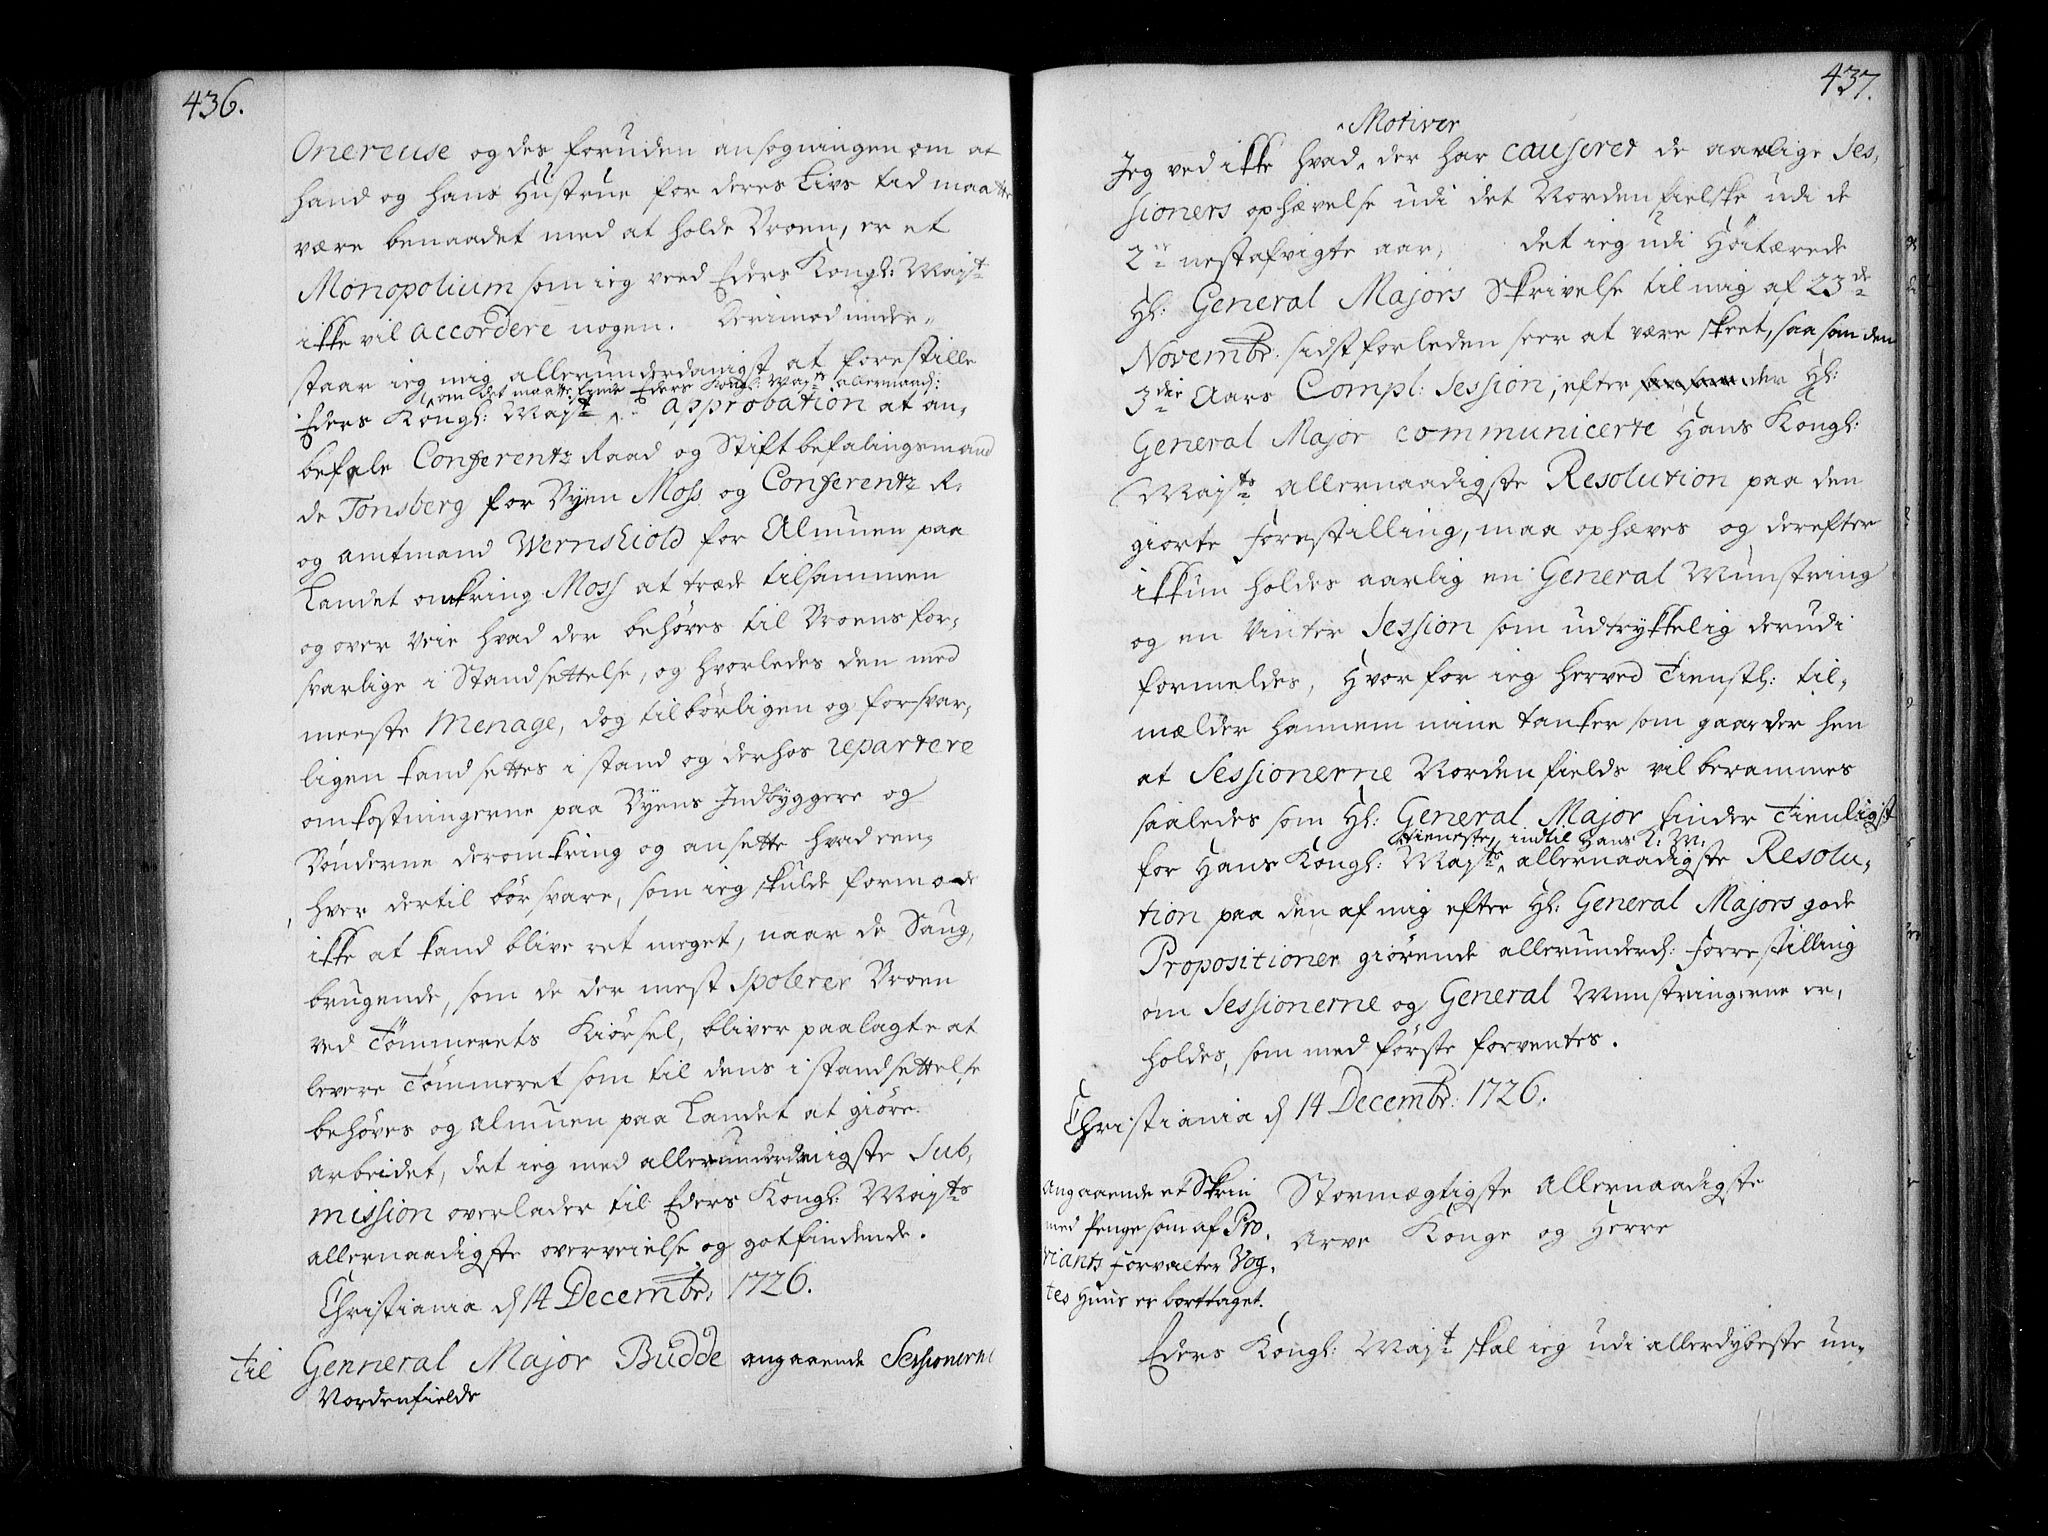 436.
Onereuse og des foruden ansøgningen om at
hand og hans Hustrue for deres Livs tid maatte
være benaadet med at holde Broen, er et
Monopolium som ieg veed Eders Kongl: Mayst:
ikke vil accordere nogen. Derimod under-
staar ieg mig allerunderdanigst at forestille
om det maatte Eders Kongl: Mayts allernaad:
Eders Kongl: Mayst approbation at an-
befale Conferentz Raad og Stiftbefalingsmand
de Tonsberg for Byen Moss og Conferentz R.
og amtmand Wernskiold for Almuen paa
Landet omkring Moss at træde tilsammen
og over veie hvad der behøves til Broens for-
svarlige i Standsettelse, og hvorledes den med
meeste Menage, dog tilbørligen og forsvar-
ligen kand settes i stand og derhos repartere
omkostningerne paa Byens Indbyggere og
Bønderne deromkring og ansette hvad een-
hver dertil bør svare, som ieg skulde formode
ikke at kand blive ret meget, naar de Saug-
brugende, som de der mest spolerer Broen
ved Tømmerets Kiørsel, bliver paalagte at
levere Tømmeret som til dens istandsettelse
behøves og almuen paa Landet at giøre
arbeidet, det ieg med allerunderdanigste Sub-
mission overlader til Eders Kongl: Maysts
allernaadigste overveielse og gotfindende.
Christiania d 14 Decembr: 1726.
til Genneral Major Budde angaaende Sessionerne
Nordenfields
437.
Motiver
Jeg ved ikke hvad der har causeret de aarlige Ses-
sioners ophævelse udi det Nordenfielske udi de
2de nestafvigte aar, det ieg udi Høitærede
Hl: General Majors Skrivelse til mig af 23de
Novembr: sidstforleden seer at være skeet, saasom den
3die Aars Compl: Session, efter der Hl:
General Major communicerte Hans Kongl:
Maysts allernaadigste Resolution paa den
giorte Forestilling, maa ophæves og derefter
ikkun holdes aarlig en General Munstring
og en Vinter Session som udtrykkelig derudi
formeldes, Hvorfor ieg herved Tienstl: til-
mælder hannem mine tanker som gaar der hen
at Sessionerne Nordenfields vil berammes
saaledes som Hl: General Major finder Tienligst
tieneste, indtil Hans K: M:
for Hans Kongl: Maysts allernaadigste Resolu-
tion paa den af mig efter Hl: General Majors gode
Propositioner giørende allerunderd: Forrestilling
om Sessionerne og General Munstringerne er-
holdes, som med første forventes.
Christiania d 14 Decembr: 1726.
Angaaende et Skrin
med Penge som af Pro-
viants Forvalter Vog-
tes Huus er borttaget.
Stormægtigste Allernaadigste
Arve Konge og Herre
Eders Kongl: Mayst skal ieg udi allerdybeste un-